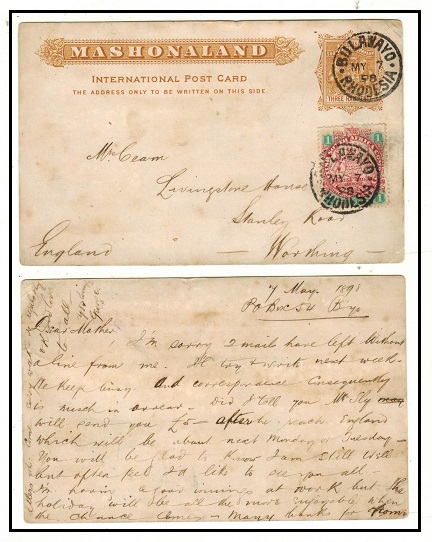 MASHONALAND
INTERNATIONAL POST CARD
THE ADDRESS ONLY TO BE WRITTEN ON THIS SIDE.
THREE HALF
BULAWAYO
MY 7
98
RHODESIA
1 1
BULAWAYO
MY 7
98
RHODESIA
Mrs Ceam
Livingstone House
Stanley Road
England — Worthing —
7 May. 1898
PO Box 54 B'yo
Dear Mother
I'm sorry 2 mails have left without
a line from me. Ill try & write next week.
We keep busy. And correspondence consequently
is much in arrear. Did I tell you Mr
will send you £5 — after he reach England
which will be about next Monday or Tuesday —
You will be glad to know I am still well
but often feel I'd like to see you all.
I'm having a good innings at work but the
holiday will be all the more enjoyable when
the chance comes — Many thanks for